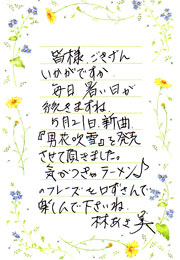 皆様、ごきげん
いかがですか
毎日暑い日が
続きますね。
5月21日、新曲
『男花吹雪』を発売
させて頂きました。
気がつきゃラーメン♪
のフレーズを口ずさんで
楽しんで下さいね
林あさ美